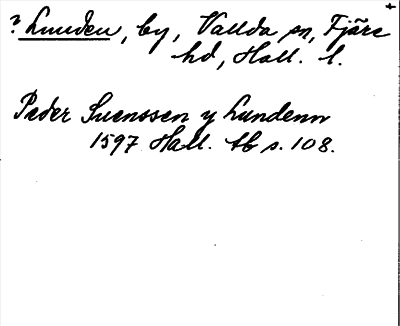 ? Lunden, by, Vallda sn, Fjäre
hd, Hall. l.
Peder Suenssen y Lundenn
1597 Hall. tb s. 108.